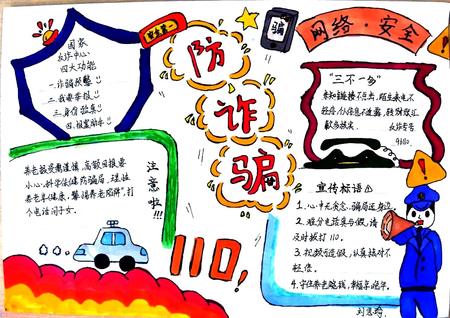 国家
反诈中心
四大功能
一.诈骗预警
二.我要举报
三.身份验真
四.报案助手
安全第一
防
诈
骗
骗
网络·安全
"三不一多"
未知链接不点击,陌生来电不
轻信,个人信息不透露,转账汇
款多核实.
反诈专号
高额回报要
小心,科学 防骗局,理性
养老年健康,警惕"养老陷阱",打
个电话问子女.
注意啦!!!
110!
宣传标语
1.心中无贪念,骗局远身边.
2.难分电话真与假,请
及时拨打110.
3. 认真核对不
轻信.
4.守住养老 钱,幸福享晚年.